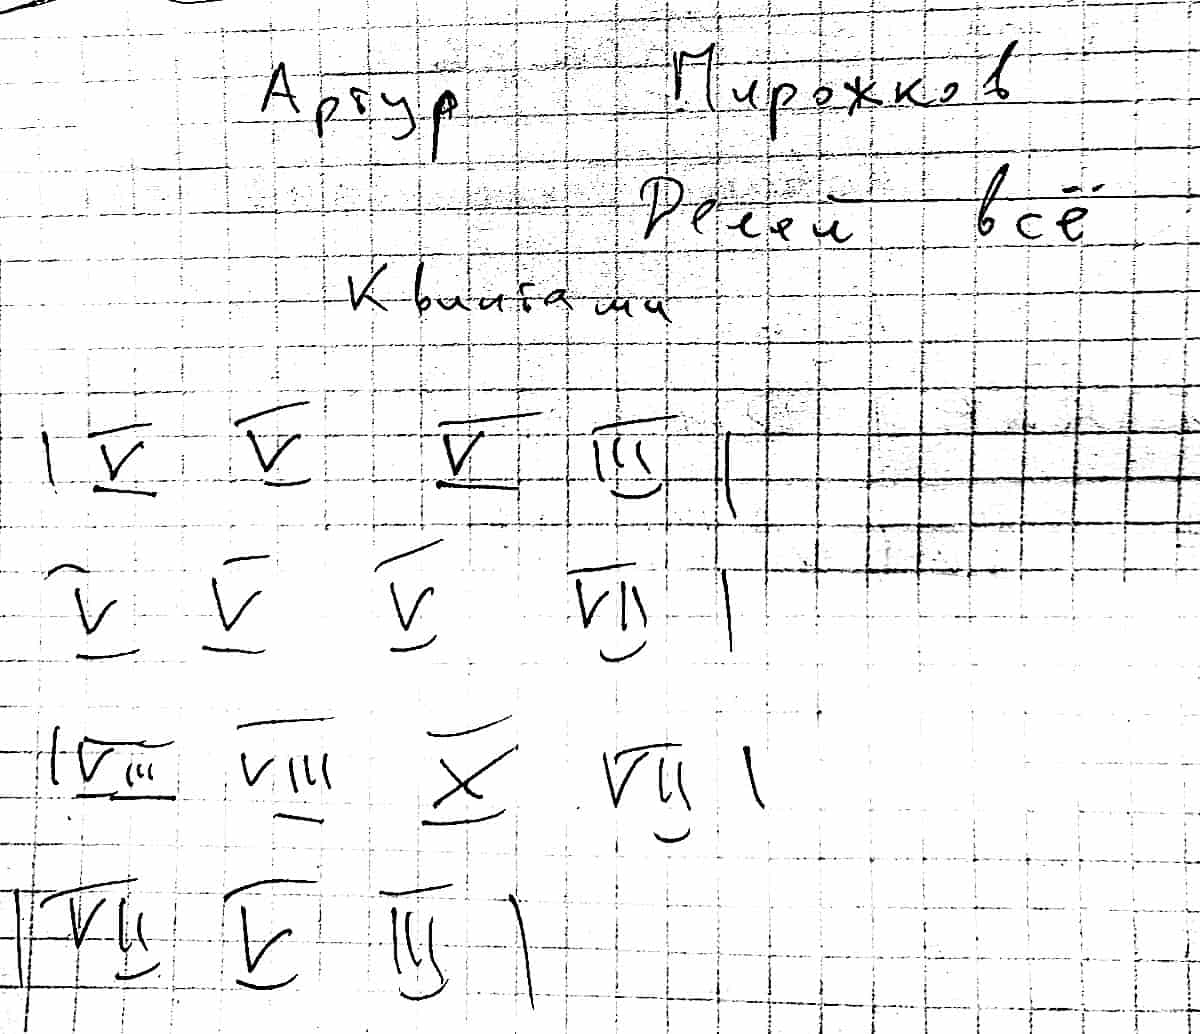 Артур Пирожков
Делей всё
Квинтами
| V V V III |
V V V VII |
| VIII VIII X VII |
| VII V III |